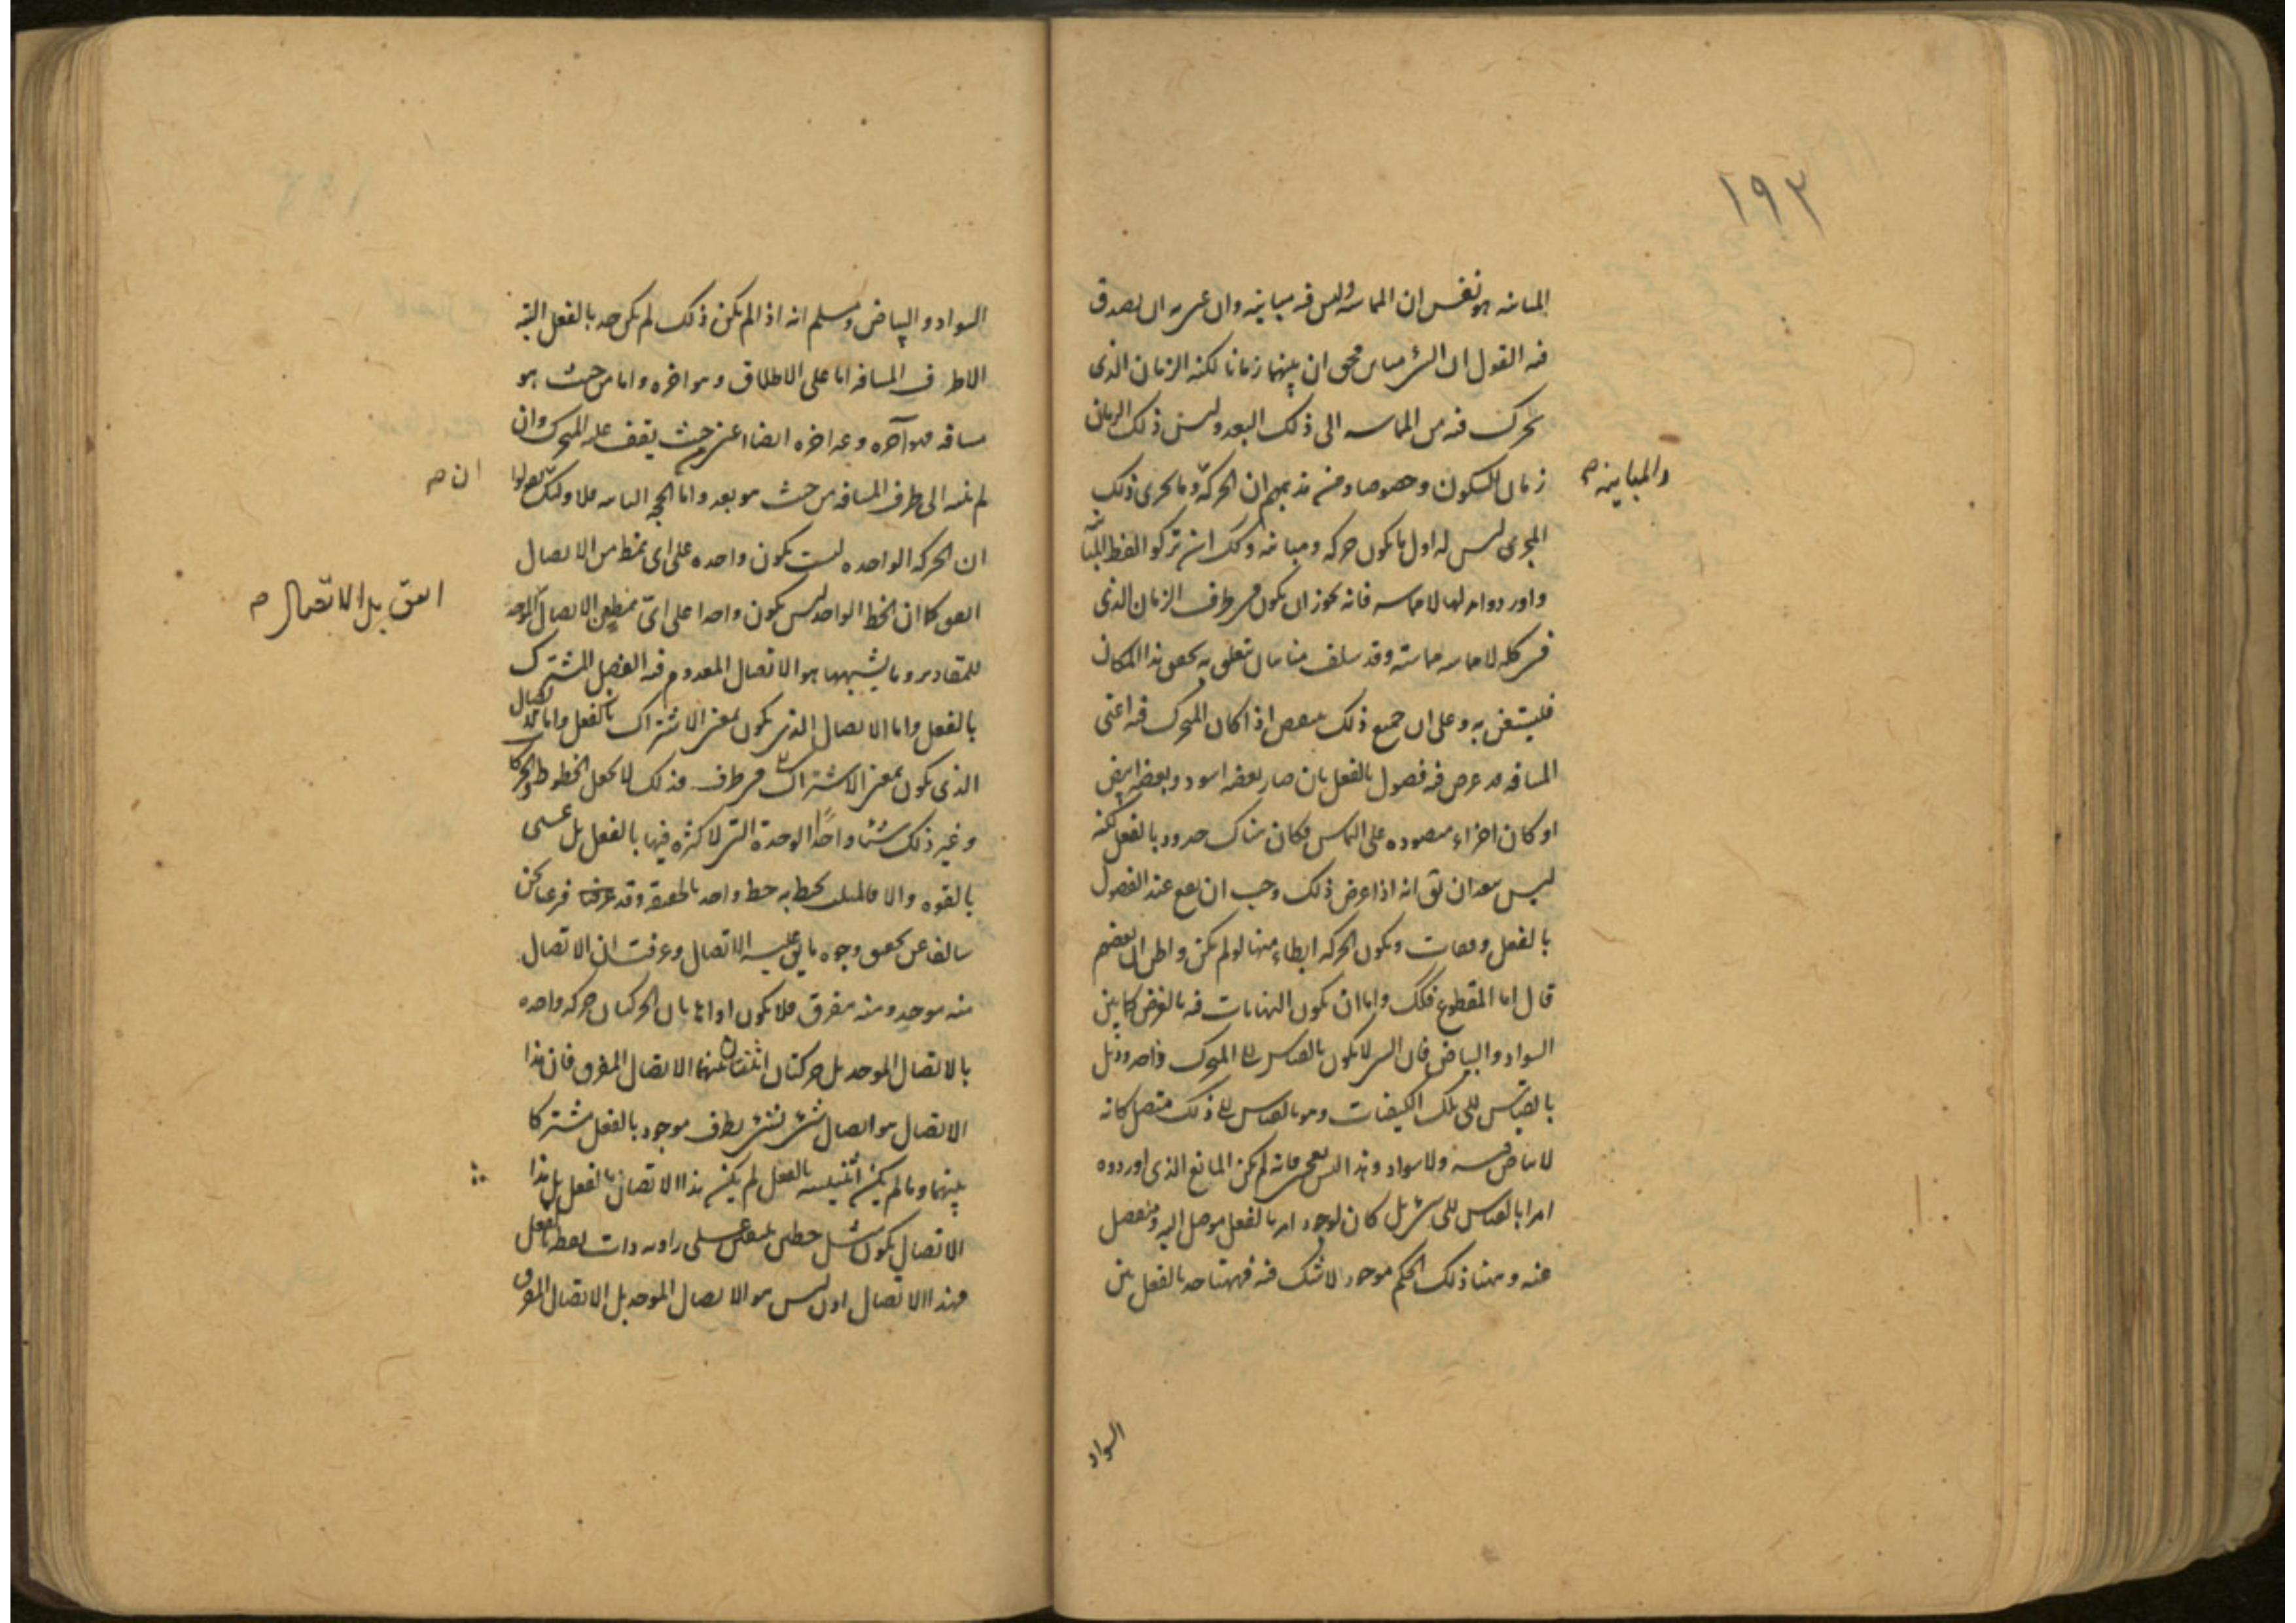 ١٩٣
المباينة هو نفس ان المماسة وليس فيه مباينة وان عنى به ان يصدق
فيه القول ان الشئ مباين فحق ان بينهما زمانا لكنه الزمان الذى
تحرك فيه من المماسة الى ذلك البعد وليس ذلك الزمان
زمان السكون وخصوصا ومن مذهبهم ان الحركة وما يجرى ذلك
والمباينة صح
المجرى ليس له اول ما يكون حركة ومباينة وكك ان تركوا لفظ المباينة
واوردوا بدلها لا مماسة فانه يجوز ان يكون فى طرف الزمان الذى
فى كله لا مماسة مماسة وقد سلف منا بيان يتعلق به تحقق هذا المكان
فليستعن به وعلى ان جميع ذلك ينتقض اذا كان المتحرك فيه اعنى
المسافة قد عرض فيه فصول بالفعل بان صار بعضه اسود وبعضه ابيض
او كان اجزاء منضودة على التماس فكان هناك حدود بالفعل لكنه
ليس ببعد ان يق انه اذا عرض ذلك وجب ان يقع عند الفصول
بالفعل وقفات ويكون الحركة ابطاء منها لو لم يكن واظن ان بعضهم
قال اما المقطوع فكك واما ان يكون النهايات فيه بالفرض كما بين
السواد والبياض فان السر لا يكون بالقياس الى المتحرك واحد وذىل
بالقياس الى تلك الكيفيات وهو بالقياس الى ذلك متصل كانه
لا بياض فيه ولا سواد وهذا ليس بعجى فانه لم يكن المانع الذى اوردوه
امرا بالقياس الى شئ بل كان لوجود امر بالفعل موصل اليه ومنفصل
عنه وههنا ذلك الحكم موجود لا شك فيه فههنا حد بالفعل بين
السواد
السواد والبياض ومسلم انه اذا لم يكن ذلك لم يكن حد بالفعل البتة
الا طرف المسافة اما على الاطلاق وهو اخره واما من حيث هو
مسافة فهو آخره وغير اخره ايضا اعنى من حيث يقف عليه المتحرك وان
لم ينته الى طرف المسافة من حيث هو بعد واما الحجة الثانية فلا ولئك يقولوا
ان صح
ان الحركة الواحدة ليست يكون واحدة على اى نمط من الاتصال
اتفق كما ان الخط الواحد ليس يكون واحدا على اى نمط من الاتصال الموحد
اتفق بل الاتصال صح
للمقادير وما يشبهها هو الاتصال المعدوم فيه الفصل المشترك
بالفعل واما الاتصال الذى يكون بمعنى الاشتراك بالفعل واما الاتصال
الذى يكون بمعنى الاشتراك فى طرف فذلك لا يجعل الخطوط والحركات
وغير ذلك شيئا واحدا الوحدة التى لا كثرة فيها بالفعل بل عسى
بالقوة والا فالمثلث يحيط به خط واحد بالحقيقة وقد فرغنا نحن
سالفا عن تحقق وجوه ما يق عليه الاتصال وعرفت ان الاتصال
منه موحد ومنه مفرق فلا يكون اذا هاتان الحركتان حركة واحدة
بالاتصال الموحد بل حركتان اثنتان بينهما الاتصال المفرق فان هذا
الاتصال هو اتصال شئ بشئ بطرف موجود بالفعل مشتركا
بينهما وما لم يكن اثنينية بالفعل لم يكن هذا الاتصال بالفعل بل هذا
الاتصال يكون مثل خطين يلتقيان على زاوية ذات نقطة بالفعل
فهذا الاتصال اذن ليس هو الاتصال الموحد بل الاتصال المفرق